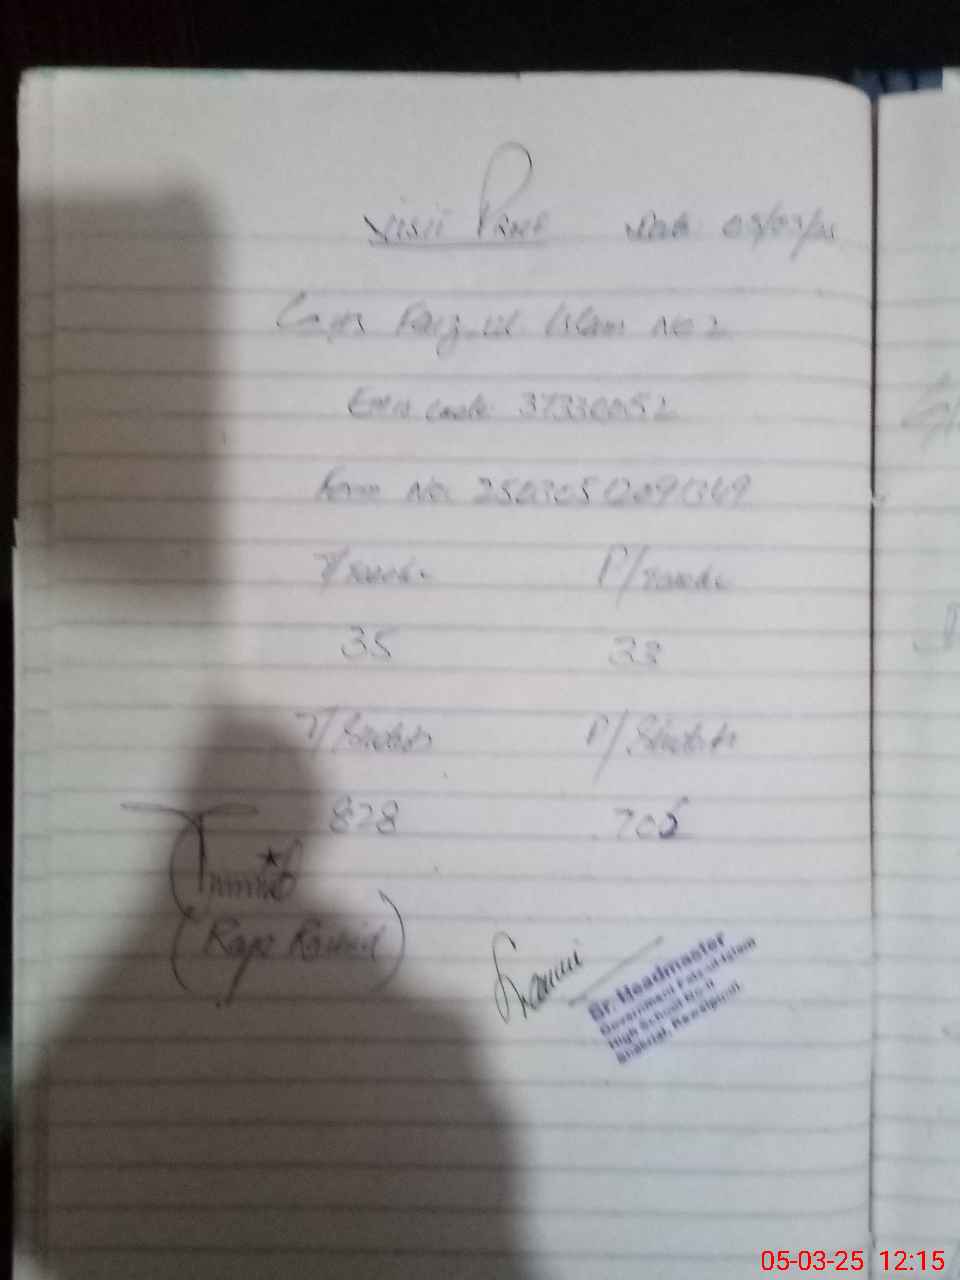 Visit Proof Date 05/03/25
Faiz-ul Islam No 2
Emis code 37330052
Form No. 250305120911369
T/ P/
35 33
T/Students P/Students
828 705
(Raja Rashid)
Sr. Headmaster
Government Faiz-ul-Islam
High School No-II
Rawalpindi
05-03-25 12:15